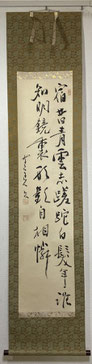 宿昔青雲志蹉跎白髮年誰
知明鏡裏形影自相憐